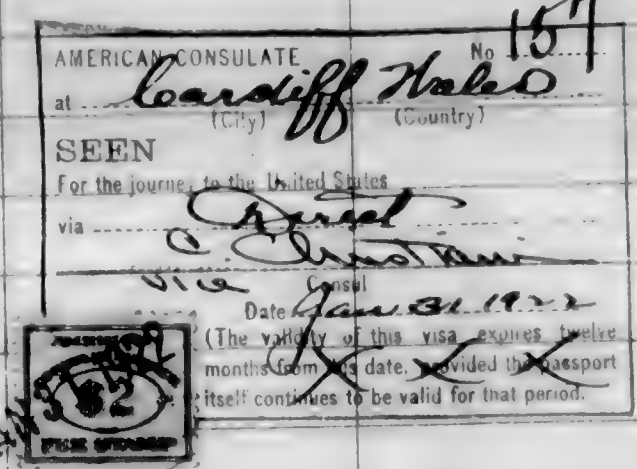 AMERICAN CONSULATE No 157
at Cardiff Wales
(City) (Country)
SEEN
For the journey to the United States
via Direct
Vice Consul
Date Jan 31 1922
(The validity of this visa expires twelve
months from this date, provided the passport
itself continues to be valid for that period.
$2
FEE STAMP